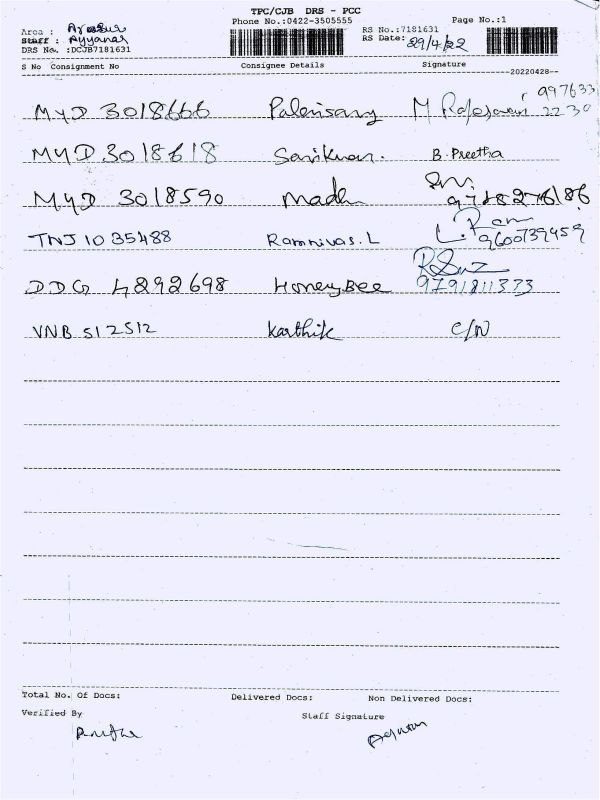 TPC/CJB DRS - PCC
Phone No.:0422-3505555 Page No.:1
Area : Arasur RS No.:7181631
Staff : Ayyanar RS Date: 29/4/22
DRS No. :DCJB7181631
S No Consignment No Consignee Details Signature
--20220428--
MYD 3018666 Palanisamy M Rajeswari 997633
2230
MYD 3018618 Sasikumar. B. Preetha
MYD 3018590 Madhu
TNJ 1035488 Ramnivas. L L. Ram 9600739459
DDG 4292698 HoneyBee 9791811373
VNB 512512 Karthik C/N
Total No. Of Docs: Delivered Docs: Non Delivered Docs:
Verified By Staff Signature